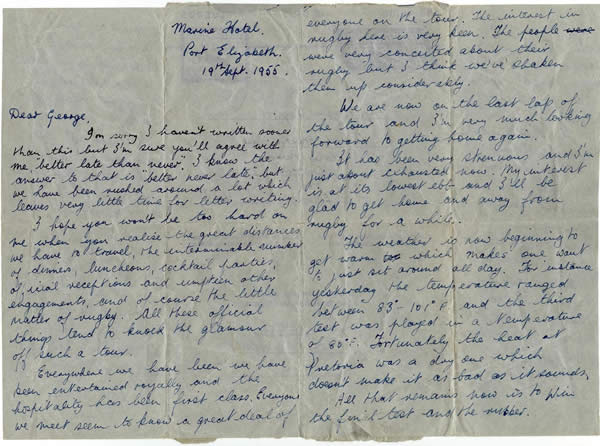 Marine Hotel.
Port Elizabeth.
19th Sept. 1955.
Dear George.
I'm sorry I haven't written sooner
than this but I'm sure you'll agree with
me "better late than never". I know the
answer to that is "better never late", but
we have been rushed around a lot which
leaves very little time for letter writing.
I hope you won't be too hard on
me when you realise the great distances
we have to travel, the interminable number
of dinners, luncheons, cocktail parties,
official receptions and umpteen other
engagements, and of course the little
matter of rugby. All these official
things tend to knock the glamour
off such a tour.
Everywhere we have been we have
been entertained royally and the
hospitality has been first class. Everyone
we meet seem to know a great deal of
everyone on the tour. The interest in
rugby here is very keen. The people were
were very conceited about their
rugby but I think we've shaken
them up considerably.
We are now on the last lap of
the tour and I'm very much looking
forward to getting home again.
It has been very strenuous and I'm
just about exhausted now. My interest
is at its lowest ebb and I'll be
glad to get home and away from
rugby for a while.
The weather is now beginning to
get warm which makes one want
to just sit around all day. For instance
yesterday the temperature ranged
between 83° - 101° F and the third
test was played in a temperature
of 80° F. Fortunately the heat at
Pretoria was a dry one which
doesn't make it as bad as it sounds.
All that remains now is to win
the final test and the rubber.